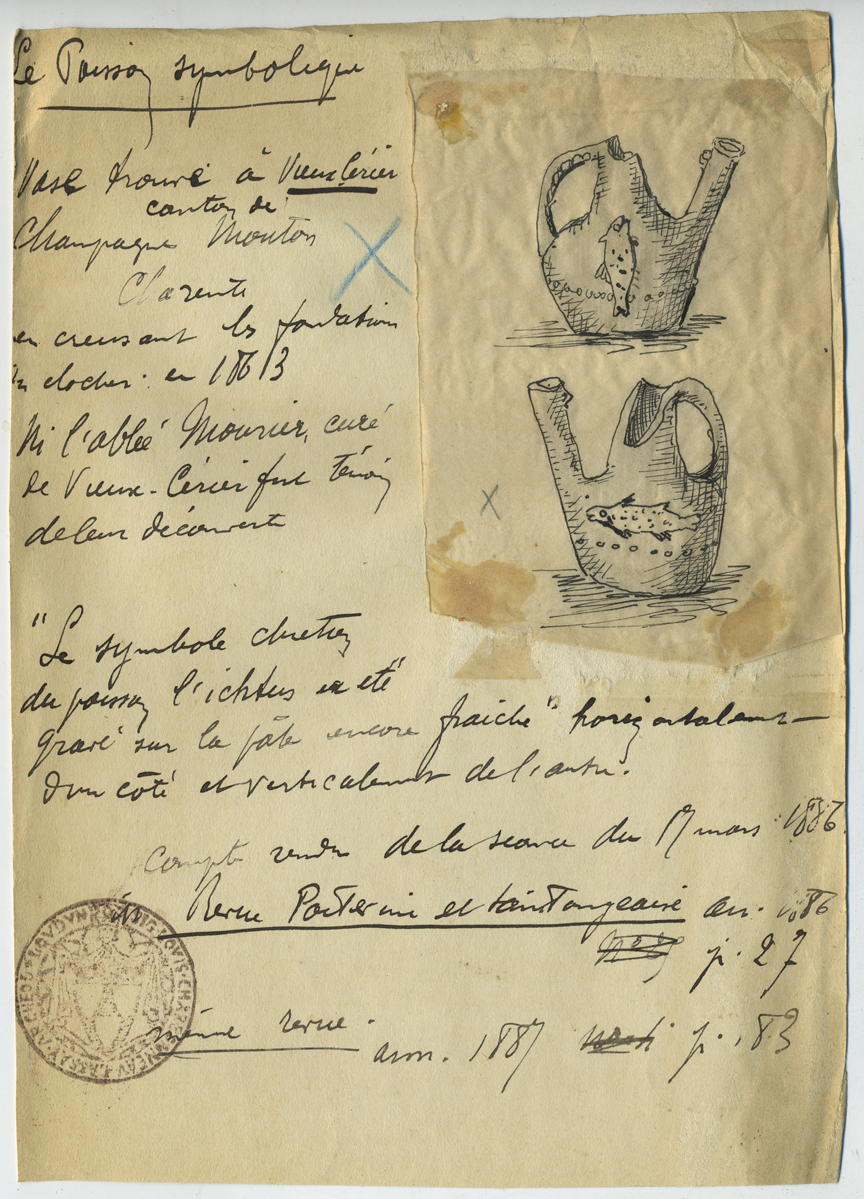 Le Poisson symbolique
Vase trouvé à Vieux Cérier
canton de
Champagne Mouton
Charente
en creusant les fondations
du clocher en 1863
Mr l'abbé Mounier, curé
de Vieux-Cérier fut témoin
de leur découverte
"Le symbole chrétien
du poisson l'ichtus a été"
gravé sur la pâte encore fraiche" horizontalement
d'un côté et verticalement de l'autre.
compte rendu de la séance du 17 mars 1886.
in Revue Poitevine et Saintongeaise an. 1886
p. 27
même revue.
ann. 1887 p. 183
LOUIS CHARBONNEAU-LASSAY